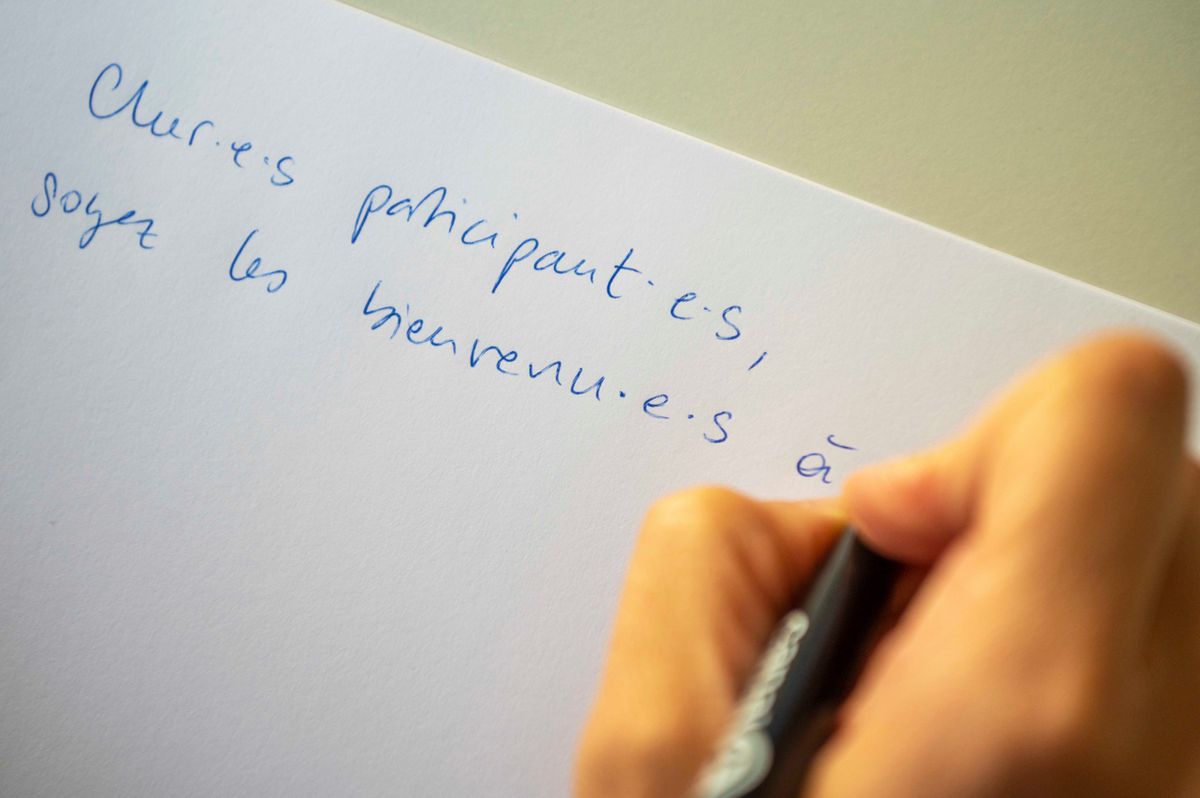 Cher·e·s participant·e·s,
soyez les bienvenu·e·s à